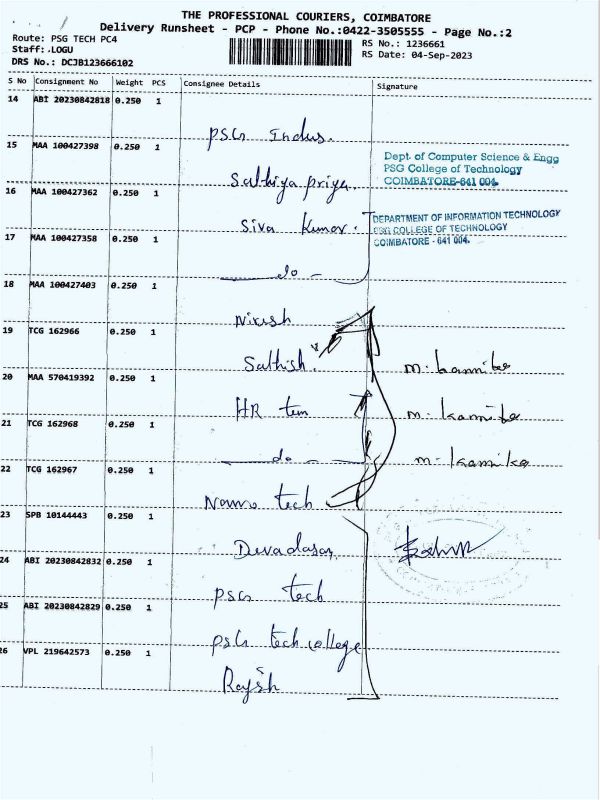 THE PROFESSIONAL COURIERS, COIMBATORE
Delivery Runsheet - PCP - Phone No.:0422-3505555 - Page No.:2
Route: PSG TECH PC4
RS No.: 1236661
Staff: .LOGU
RS Date: 04-Sep-2023
DRS No.: DCJB123666102
S No Consignment No Weight PCS Consignee Details Signature
14 ABI 20230842818 0.250 1
psG Indus.
15 MAA 100427398 0.250 1
Dept. of Computer Science & Engg
PSG College of Technology
COIMBATORE-641 004.
Sathiya priya.
16 MAA 100427362 0.250 1
DEPARTMENT OF INFORMATION TECHNOLOGY
PSG COLLEGE OF TECHNOLOGY
COIMBATORE - 641 004.
Siva Kumar.
17 MAA 100427358 0.250 1
do
18 MAA 100427403 0.250 1
19 TCG 162966 0.250 1
Sathish.
20 MAA 570419392 0.250 1
HR tem
21 TCG 162968 0.250 1
do
m. kamika
22 TCG 162967 0.250 1
tech
23 SPB 10144443 0.250 1
Devadasan
24 ABI 20230842832 0.250 1
psG tech
25 ABI 20230842829 0.250 1
psG tech college
26 VPL 219642573 0.250 1